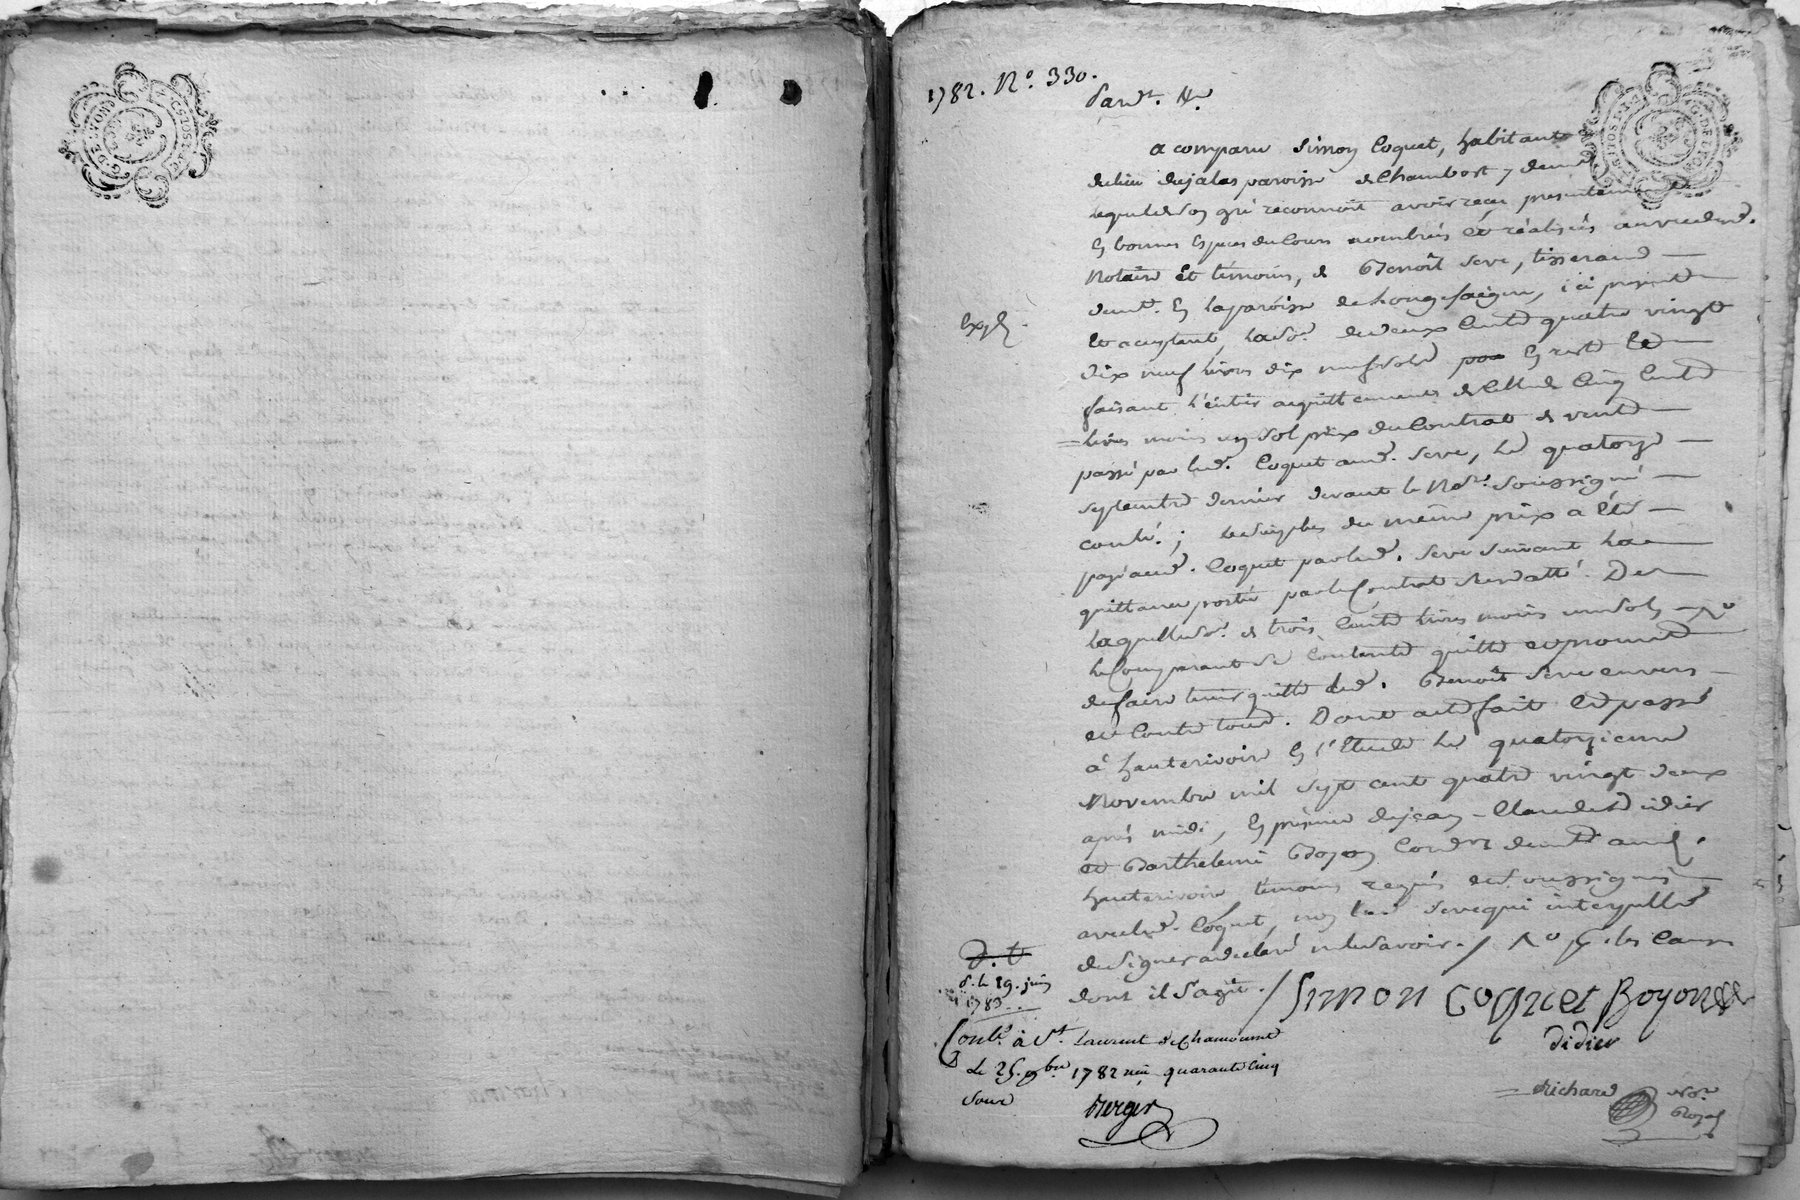 1782. N.o 330.
Pardt. N.re
a comparu Simon Coquet, habitant
du lieu dejalas paroisse de Chambost y demt
lequel de son gré reconnoit avoir recu presentement
en bonnes Especes du Cours nombrées et réalisées au vu dud.
Notaire et témoins, de Benoît Seve, tisserand
demt. en la paroisse de Longesaigne, ici present
et acceptant, la so.e de deux Cents quatre vingt
dix neuf livres dix neuf sols en reste et
faisant l'entier acquittement de Celle de Cinq Cents
livres moins un sol prix du Contrat de vente
passé par led. Coquet aud. Seve, le quatorze
septembre dernier devant le No.re soussigné
conlé.; le surplus du même prix a été
payé aud. Coquet par led. Seve suivant la
quittance portée par le Contrat susdatté. De
laquelle so.e de trois Cents livres moins un sol
le Comparant se Contente quitte et promet
de faire tenir quitte led. Benoît Seve envers
et Contre tous. Dont acte fait et passé
à hauterivoire en l'Etude le quatorzieme
Novembre mil sept cent quatre vingt deux
après midi, en présence de jean-Claude Didier
et Barthelemi Boyon Cord.rs demt aud.
hauterivoire témoins requis et soussignés
avec led. Coquet, non led Seve qui interpellé
de signer a déclaré ne le savoir. / No p les Causes
dont il s'agit. /
Simon Coquet Boyon
didier
Richard No.re
Royal
Expé
d. le 29. juin
1783
Conlé. à St. Laurent de Chamousset
Le 25. 9bre 1782 reçu quarante Cinq
sous
Berger